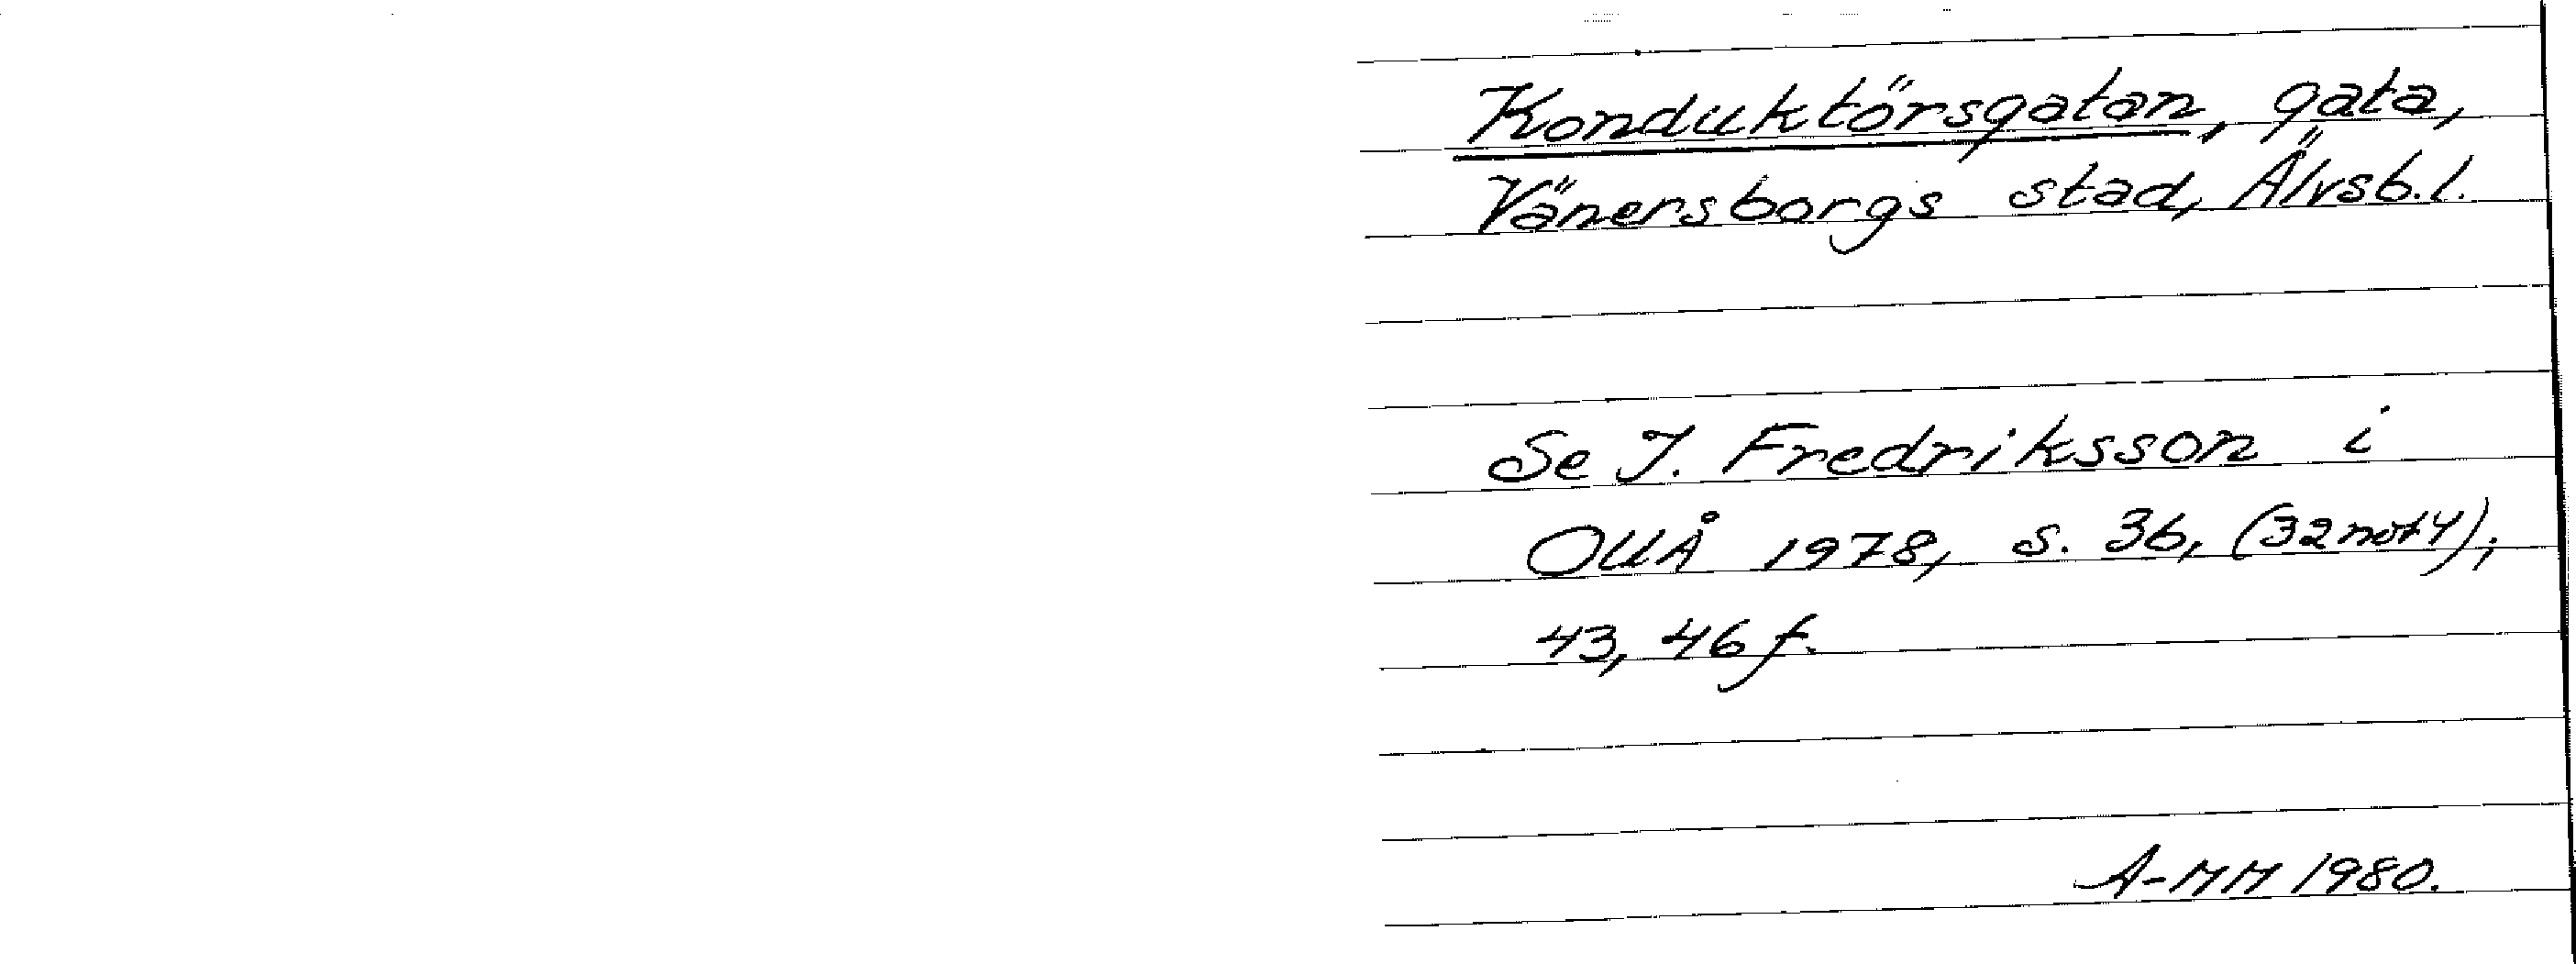 Konduktörsgatan, gata,
Vänersborgs stad, Älvsb.l.
Se I. Fredriksson i
OUÅ 1978, s. 36, (32 not 4);
43, 46 f.
A-MM 1980.